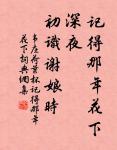 記得那年花下
深夜
初識謝娘時
韦庄荷葉杯記得那年
花下詞典網集